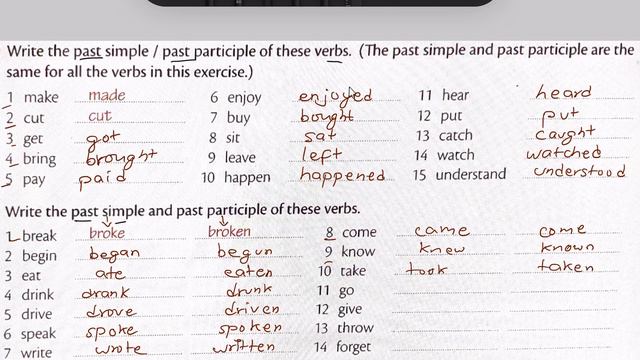 Write the past simple / past participle of these verbs. (The past simple and past participle are the
same for all the verbs in this exercise.)
1 make made 6 enjoy enjoyed 11 hear heard
2 cut cut 7 buy bought 12 put put
3 get got 8 sit sat 13 catch caught
4 bring brought 9 leave left 14 watch watched
5 pay paid 10 happen happened 15 understand understood
Write the past simple and past participle of these verbs.
1 break broke broken 8 come came come
2 begin began begun 9 know knew known
3 eat ate eaten 10 take took taken
4 drink drank drunk 11 go
5 drive drove driven 12 give
6 speak spoke spoken 13 throw
7 write wrote written 14 forget